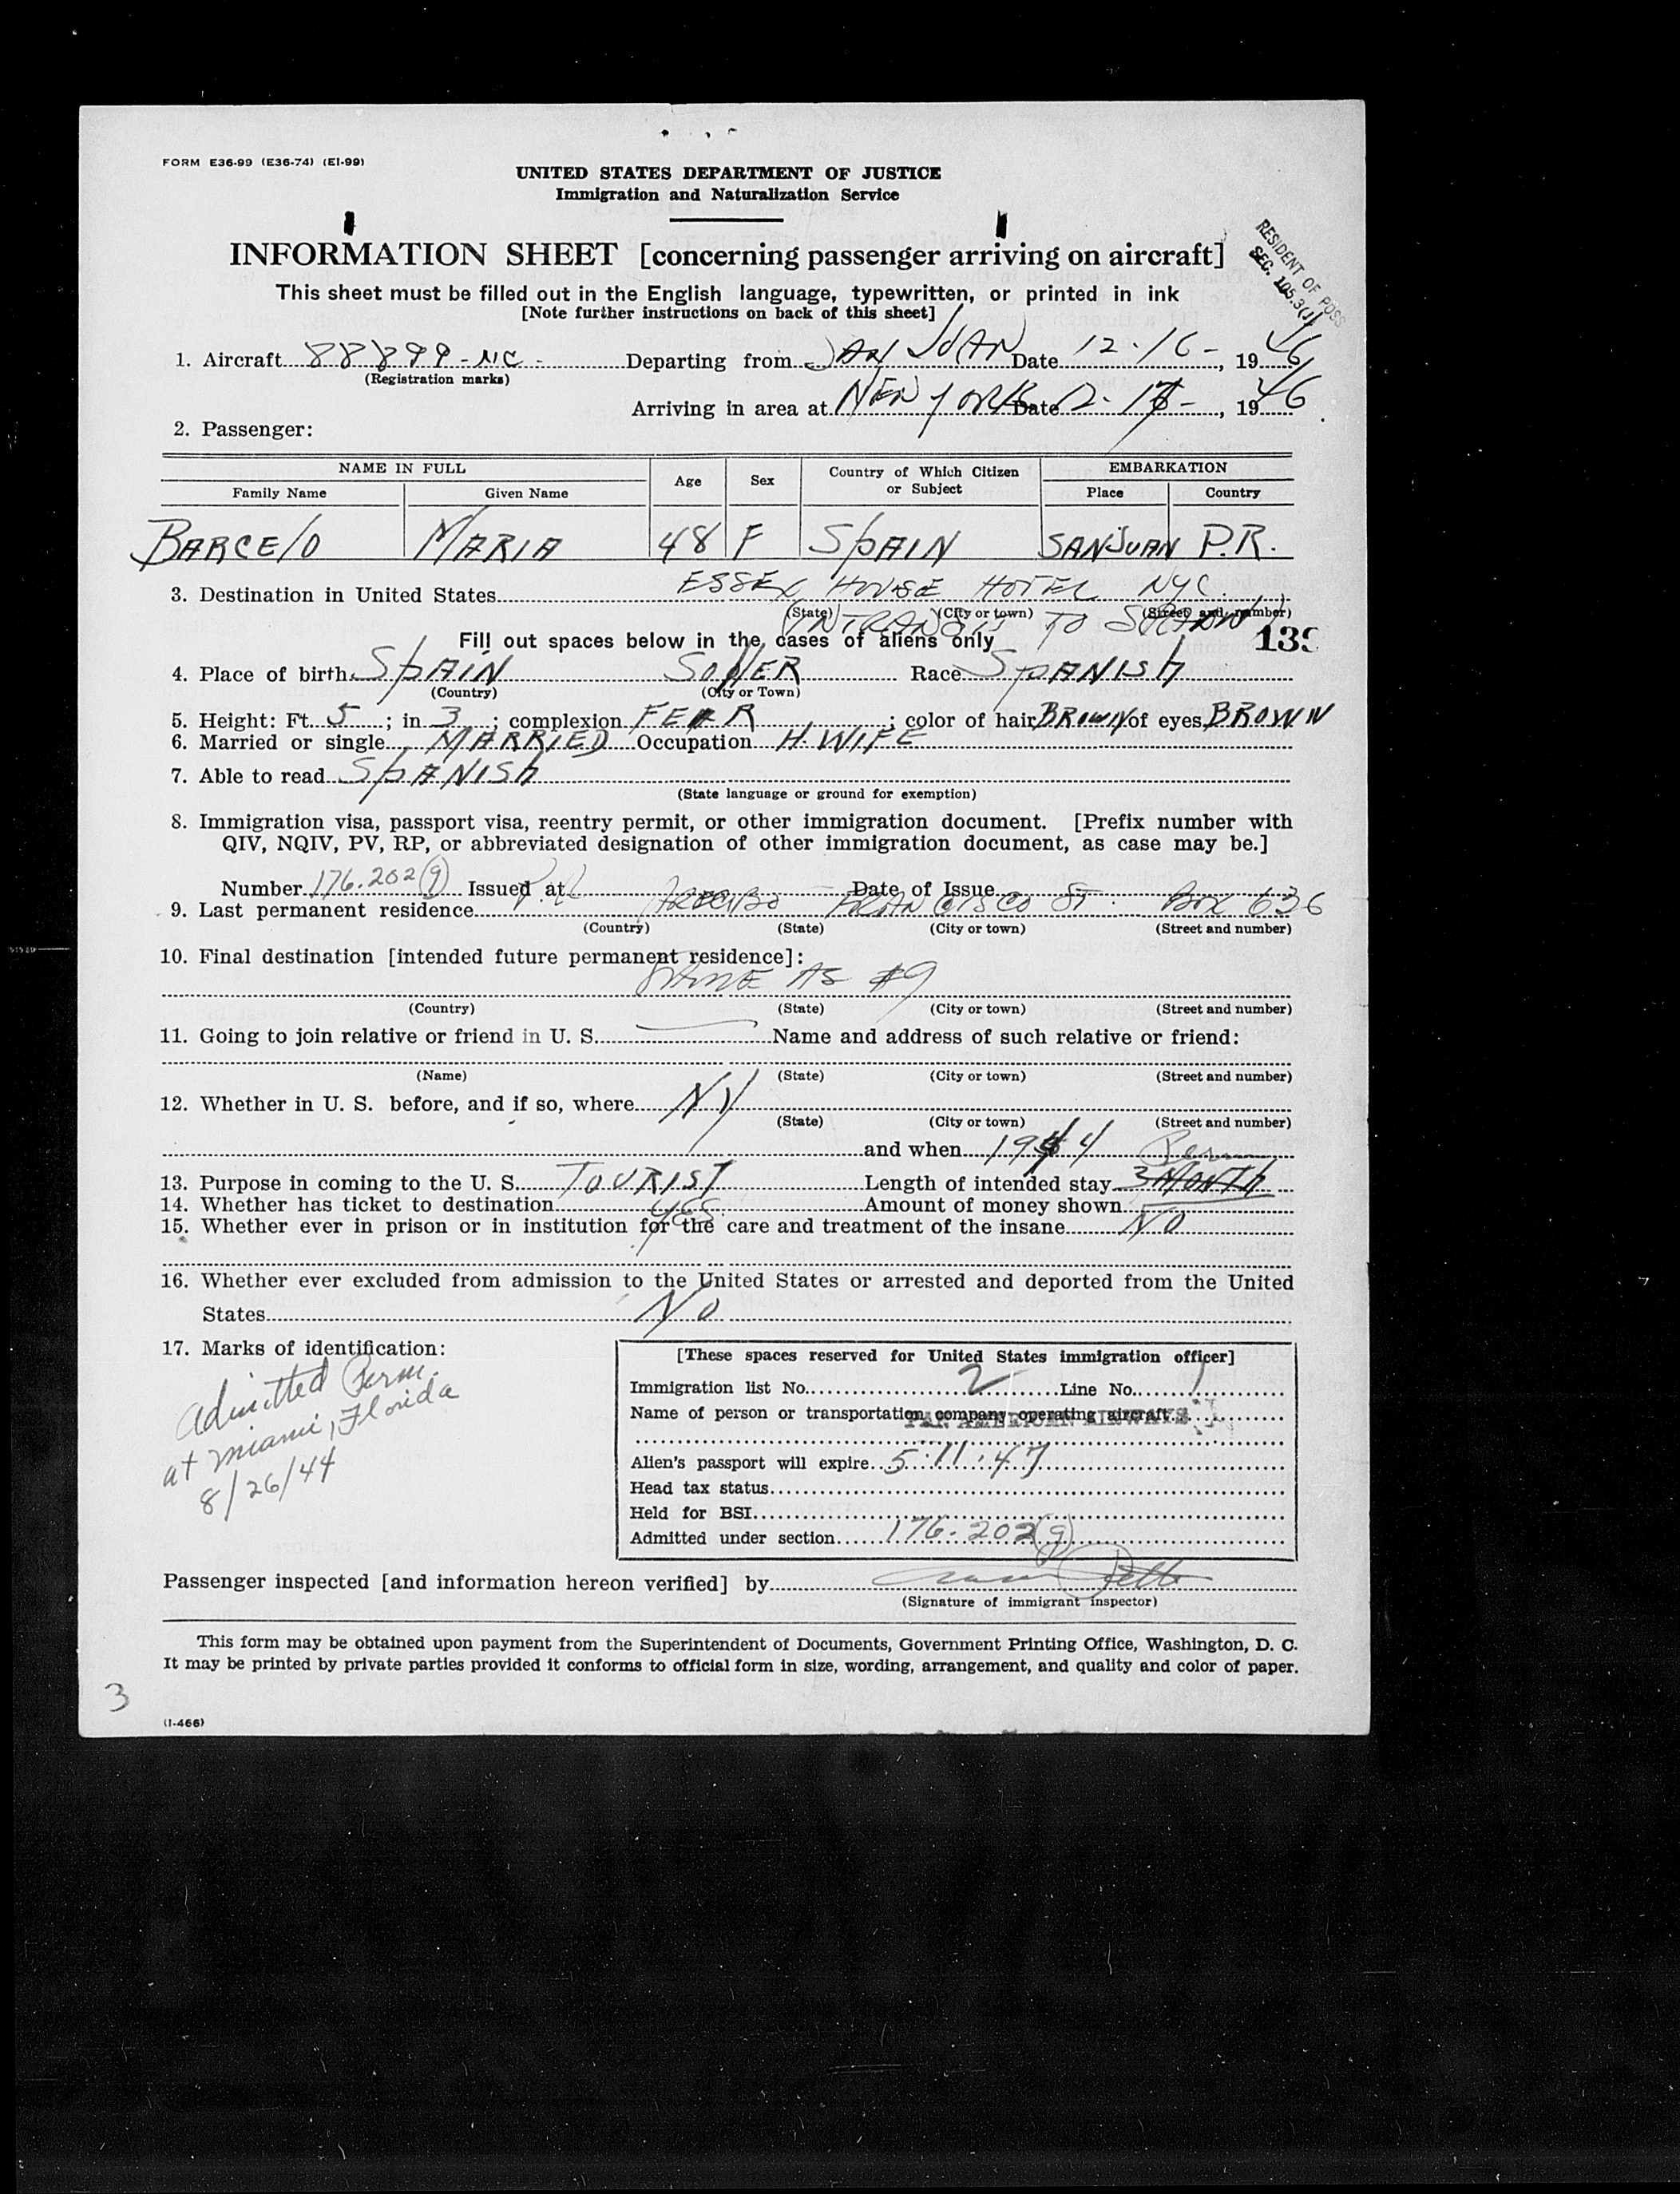 FORM E36-99 (E36-74) (EI-99)
UNITED STATES DEPARTMENT OF JUSTICE
Immigration and Naturalization Service
INFORMATION SHEET [concerning passenger arriving on aircraft]
RESIDENT OF POSS
SEC. 105.3(J)
This sheet must be filled out in the English language, typewritten, or printed in ink
[Note further instructions on back of this sheet]
1. Aircraft 88899-NC- Departing from SAN JUAN Date 12-16-, 1946
(Registration marks)
Arriving in area at NEW YORK Date 12-17-, 1946
2. Passenger:
NAME IN FULL Age Sex Country of Which Citizen or Subject EMBARKATION
Family Name Given Name Place Country
BARCELO MARIA 48 F SPAIN SAN JUAN P.R.
3. Destination in United States ESSEX HOUSE HOTEL NYC.
(State) (City or town) (Street and number)
INTRANSIT TO SPAIN
Fill out spaces below in the cases of aliens only 139
4. Place of birth SPAIN SOLLER Race SPANISH
(Country) (City or Town)
5. Height: Ft. 5; in 3; complexion FEAR; color of hair BROWN of eyes BROWN
6. Married or single MARRIED Occupation H. WIFE
7. Able to read SPANISH
(State language or ground for exemption)
8. Immigration visa, passport visa, reentry permit, or other immigration document. [Prefix number with
QIV, NQIV, PV, RP, or abbreviated designation of other immigration document, as case may be.]
Number 176.202(g) Issued at Date of Issue
9. Last permanent residence P.R. ARECIBO FRANCISCO ST. Box 636
(Country) (State) (City or town) (Street and number)
10. Final destination [intended future permanent residence]:
SAME AS #9
(Country) (State) (City or town) (Street and number)
11. Going to join relative or friend in U. S. Name and address of such relative or friend:
(Name) (State) (City or town) (Street and number)
12. Whether in U. S. before, and if so, where NY
(State) (City or town) (Street and number)
and when 1944 Perm
13. Purpose in coming to the U. S. TOURIST Length of intended stay 3 MONTH
14. Whether has ticket to destination YES. Amount of money shown
15. Whether ever in prison or in institution for the care and treatment of the insane NO
16. Whether ever excluded from admission to the United States or arrested and deported from the United
States NO
17. Marks of identification:
Admitted Perm.
at Miami, Florida
8/26/44
[These spaces reserved for United States immigration officer]
Immigration list No. 2 Line No. 1
Name of person or transportation company operating aircraft PAN AMERICAN AIRWAYS
Alien's passport will expire 5.11.47
Head tax status
Held for BSI
Admitted under section 176.202(g)
Passenger inspected [and information hereon verified] by
(Signature of immigrant inspector)
This form may be obtained upon payment from the Superintendent of Documents, Government Printing Office, Washington, D. C.
It may be printed by private parties provided it conforms to official form in size, wording, arrangement, and quality and color of paper.
3
(I-466)